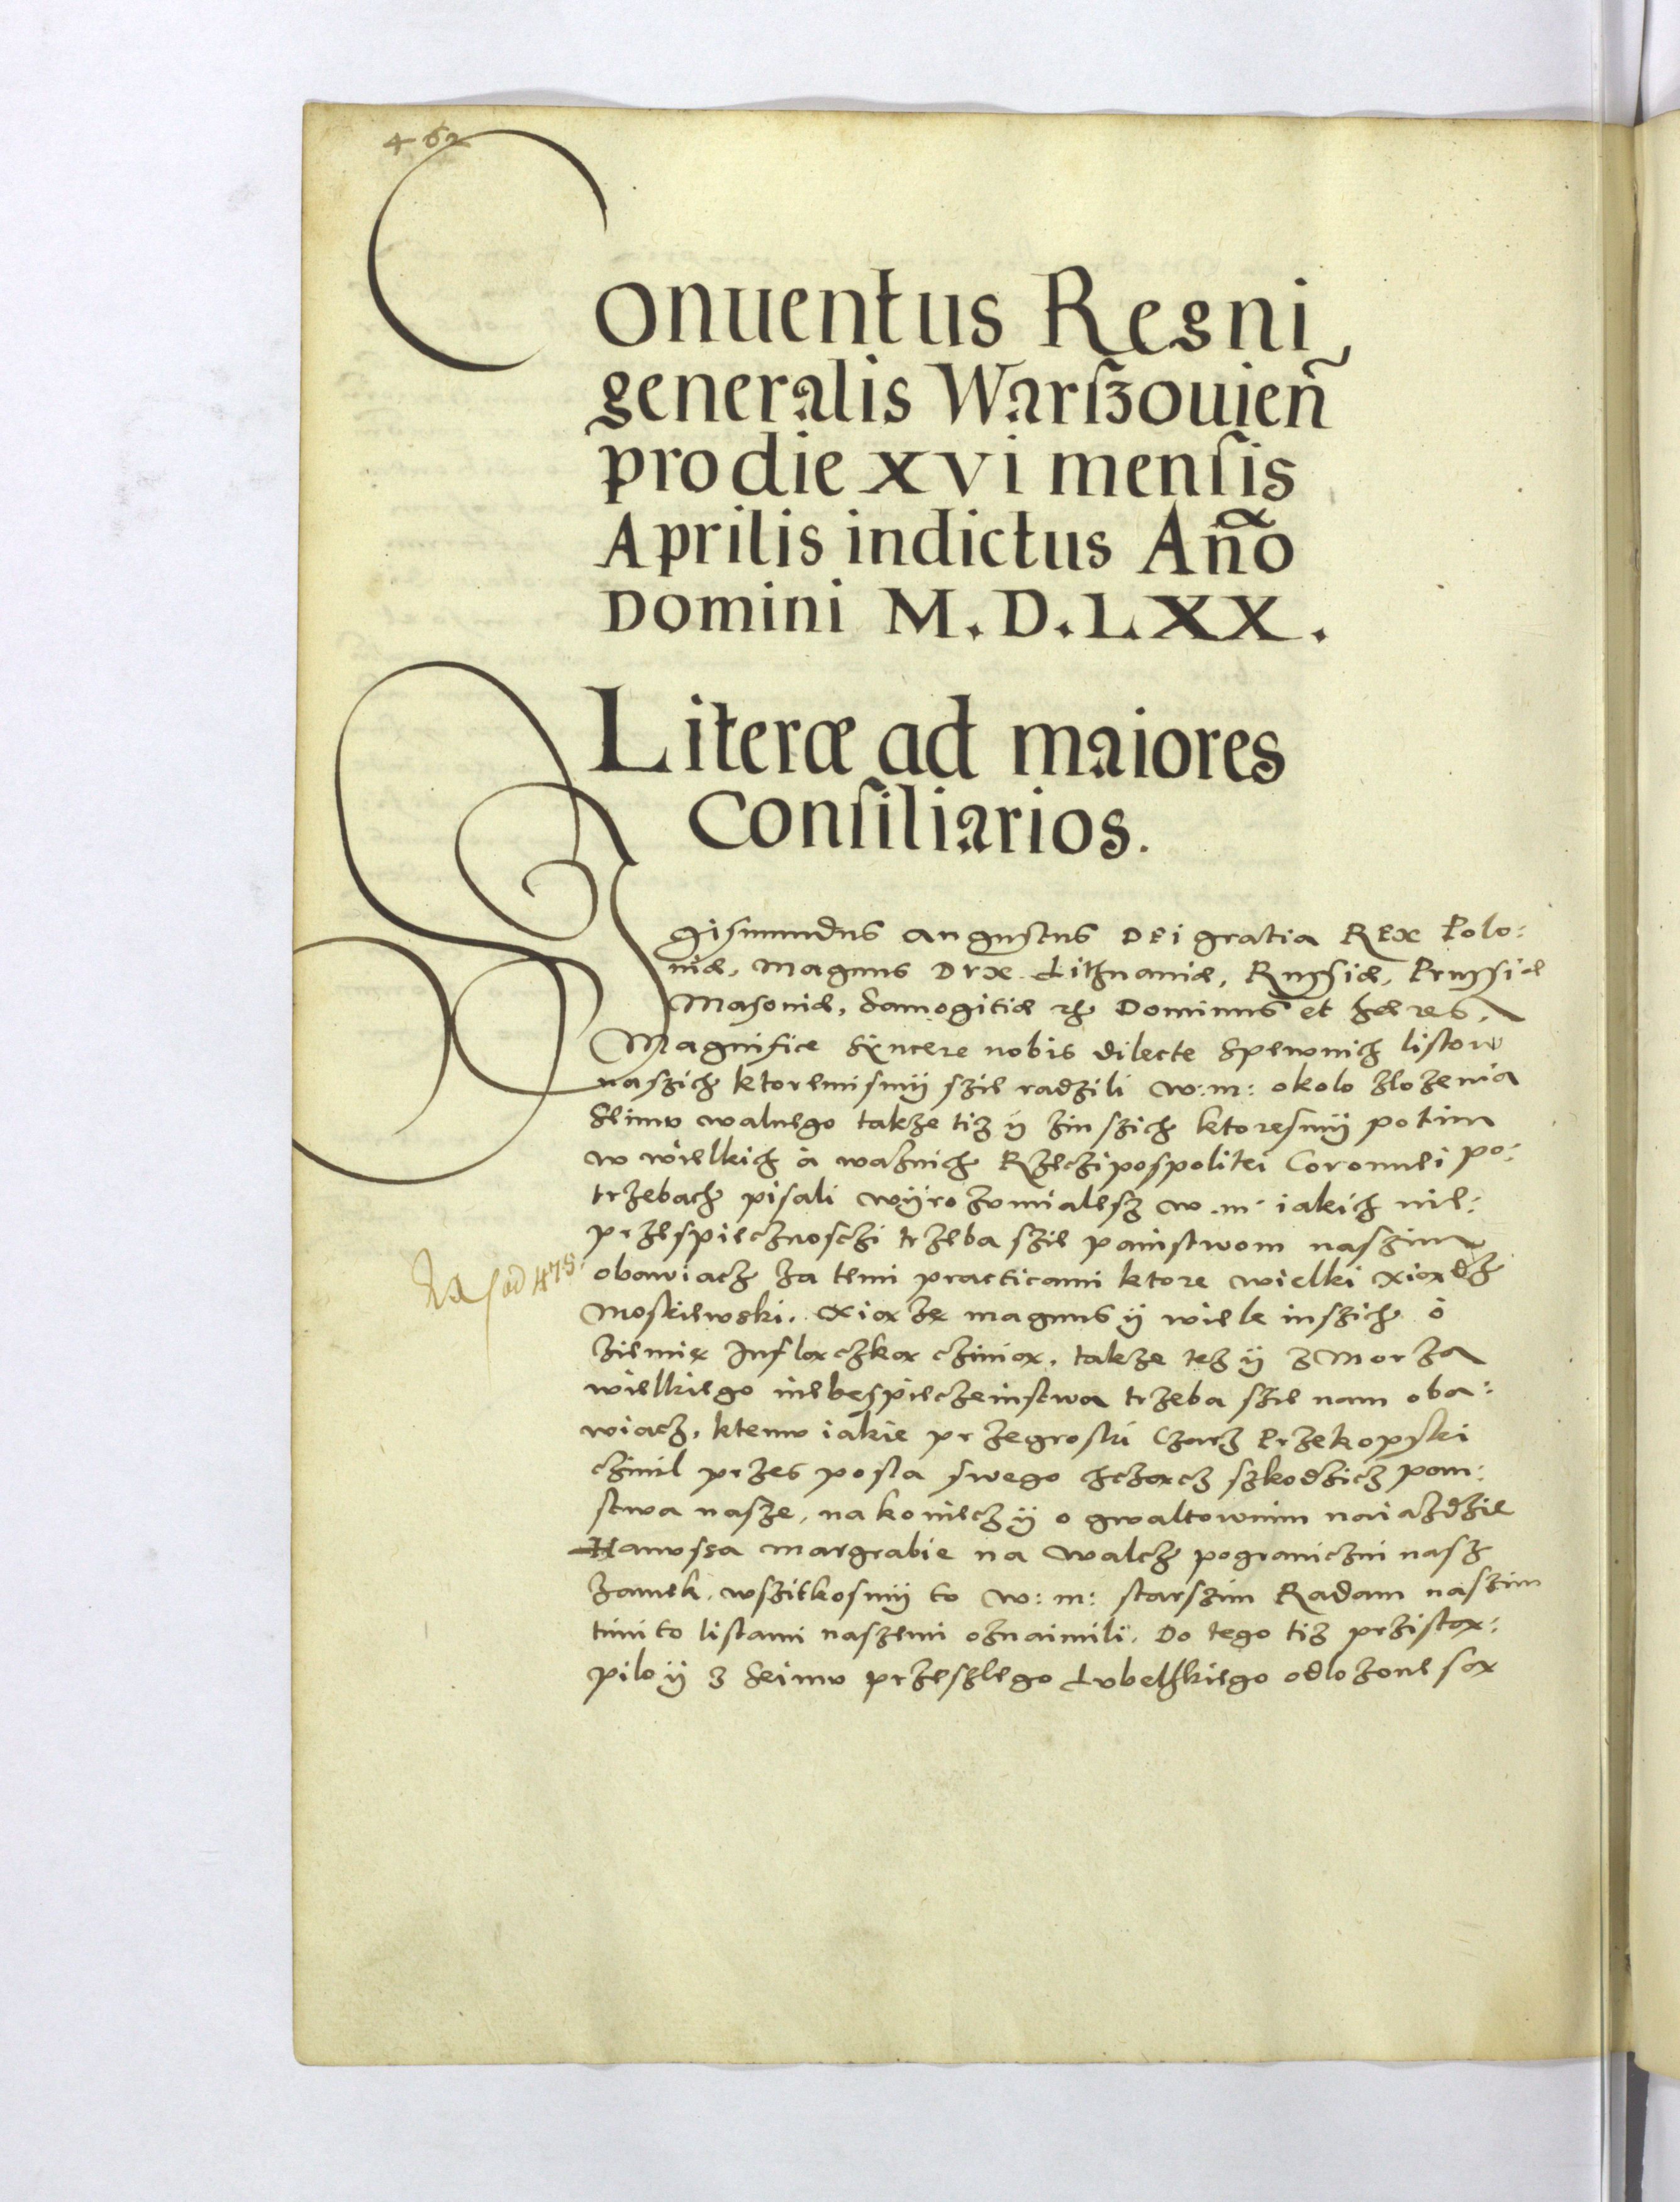 462
Conuentus Regni
generalis Warſzouien̄
pro die xvi menſis
Aprilis indictus An̄o
Domini M. D. LXX.
Literæ ad maiores
Conſiliarios.
Sigismundus Augustus Dei gratia Rex Polo:
niæ, Magnus Dvx Lithuaniæ, Russiæ, Prussiæ
Masouiæ, Samogitiæ Dominus et hæres.
Magnifice Syncere nobis dilecte Spewnich listow
naszich ktoremismÿ szie radzili w: m: okolo zlozenia
Seimv walnego takze tiz ÿ zinszich ktoresmÿ potim
w wielkich à waznich Rzeczipospolitei Coronnei po:
trzebach pisali wÿrozvmialesz w. m. iakich nie:
przespiecznosczi trzeba szie painstwom naszim
obawiacz za temi practicami ktore wielki xiaądz
Moskiewski. Xiaze magnus ÿ wiele inszich ò
ziemię Inflaczka cziniа, takze tez ÿ z Morza
wielkiego niebespieczeinstwa trzeba szie nam oba:
wiacz, ktemv iakie przegroski Czarz Przekopski
czinil przes posla swego chczacz szkodzicz pan:
stwa nasze, na koniecz ÿ o gwaltownim naiazdzie
Hanvssa margrabie na walcz pograniczni nasz
zamek. wszitkosmÿ to w: m: starszim Radam naszim
timi to listami naszemi oznaimili. Do tego tiz przistа:
pilo ÿ z Seimv przeszlego Lvbelskiego odlozone są